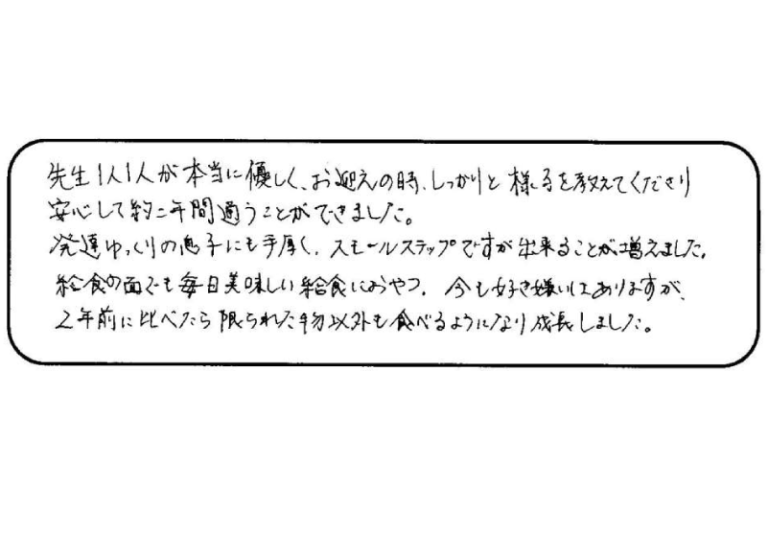 先生1人1人が本当に優しく、お迎えの時、しっかりと様子を教えてくださり
安心して約二年間通うことができました。
発達ゆっくりの息子にも手厚く、スモールステップですが出来ることが増えました。
給食の面でも毎日美味しい給食におやつ、今も好き嫌いはありますが、
2年前に比べたら限られた物以外も食べるようになり成長しました。